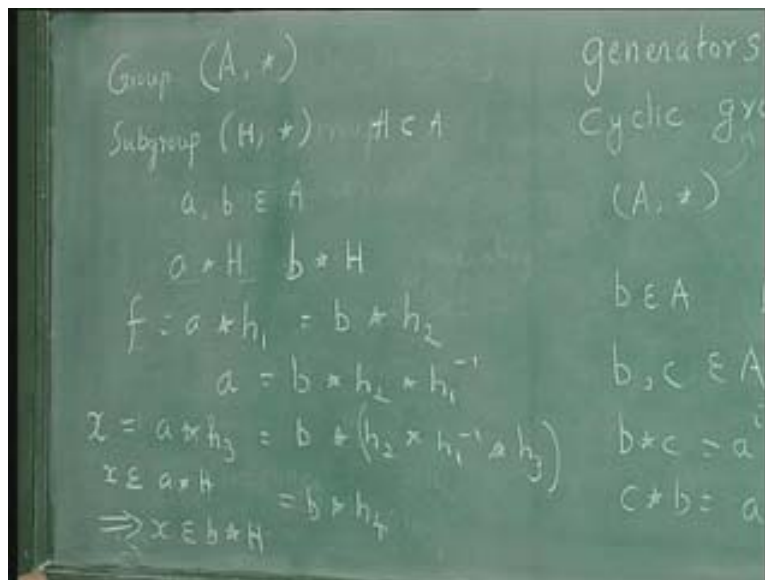 Group (A, *)
Subgroup (H, *) H ⊂ A
a, b ε A
a * H b * H
f = a * h₁ = b * h₂
a = b * h₂ * h₁⁻¹
x = a * h₃ = b * (h₂ * h₁⁻¹ * h₃)
x ε a * H
= b * h₄
⇒ x ε b * H
generators
Cyclic
(A, *)
b ε A
b, c ε A
b * c = aⁱ
c * b = a